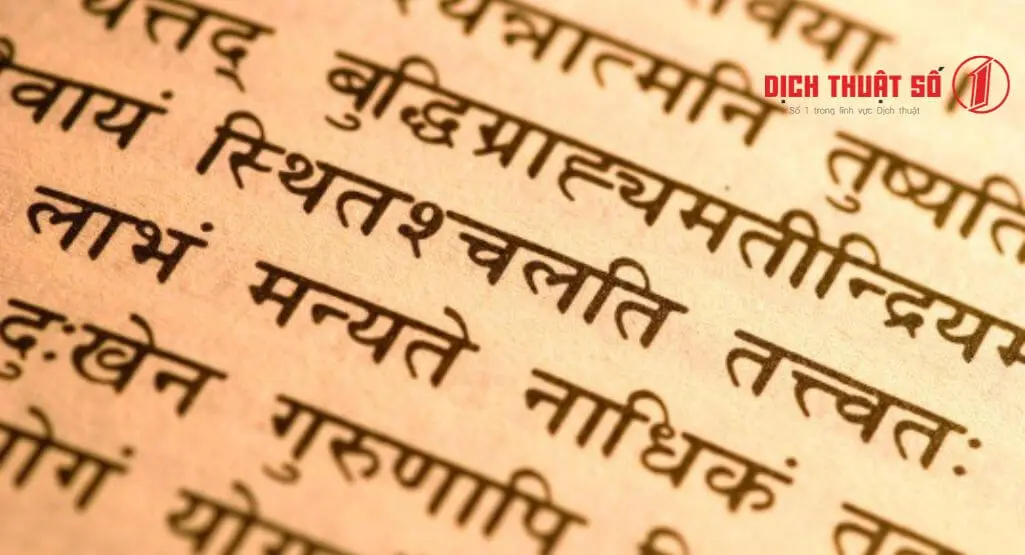 वया
श्यन्नात्मनि तुष्यति
बुद्धिग्राह्यमतीन्द्रियम
वायं स्थितश्चलति तत्त्वतः
लाभं मन्यते नाधिकं
दुःखेन गुरुणापि
DỊCH THUẬT SỐ 1
Số 1 trong lĩnh vực Dịch thuật